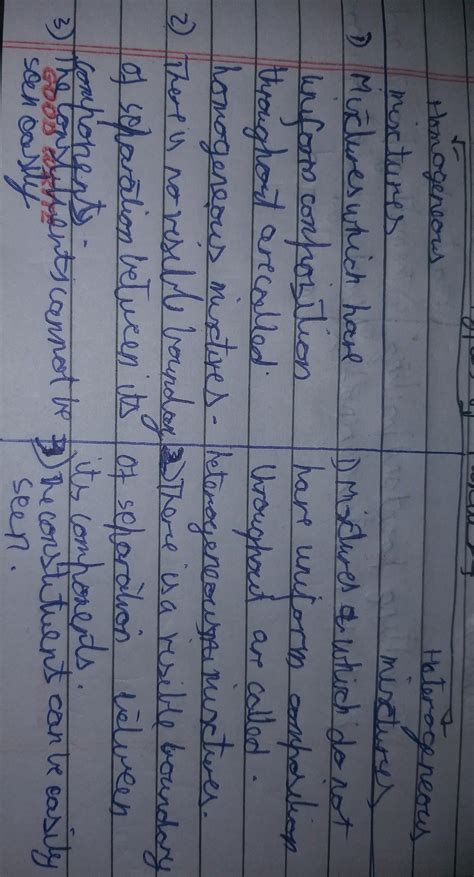 Homogeneous
mixtures
1) Mixtures which have
uniform composition
throughout are called.
homogeneous mixtures.
2) There is no visible boundary
of separation between its
components.
3) The constituents cannot be
seen easily
GOOD
Heterogeneous
mixtures
1) Mixtures which do not
have uniform composition
throughout are called.
heterogeneous mixtures.
2) There is a visible boundary
of separation between
its components.
3) The constituents can be easily
seen.